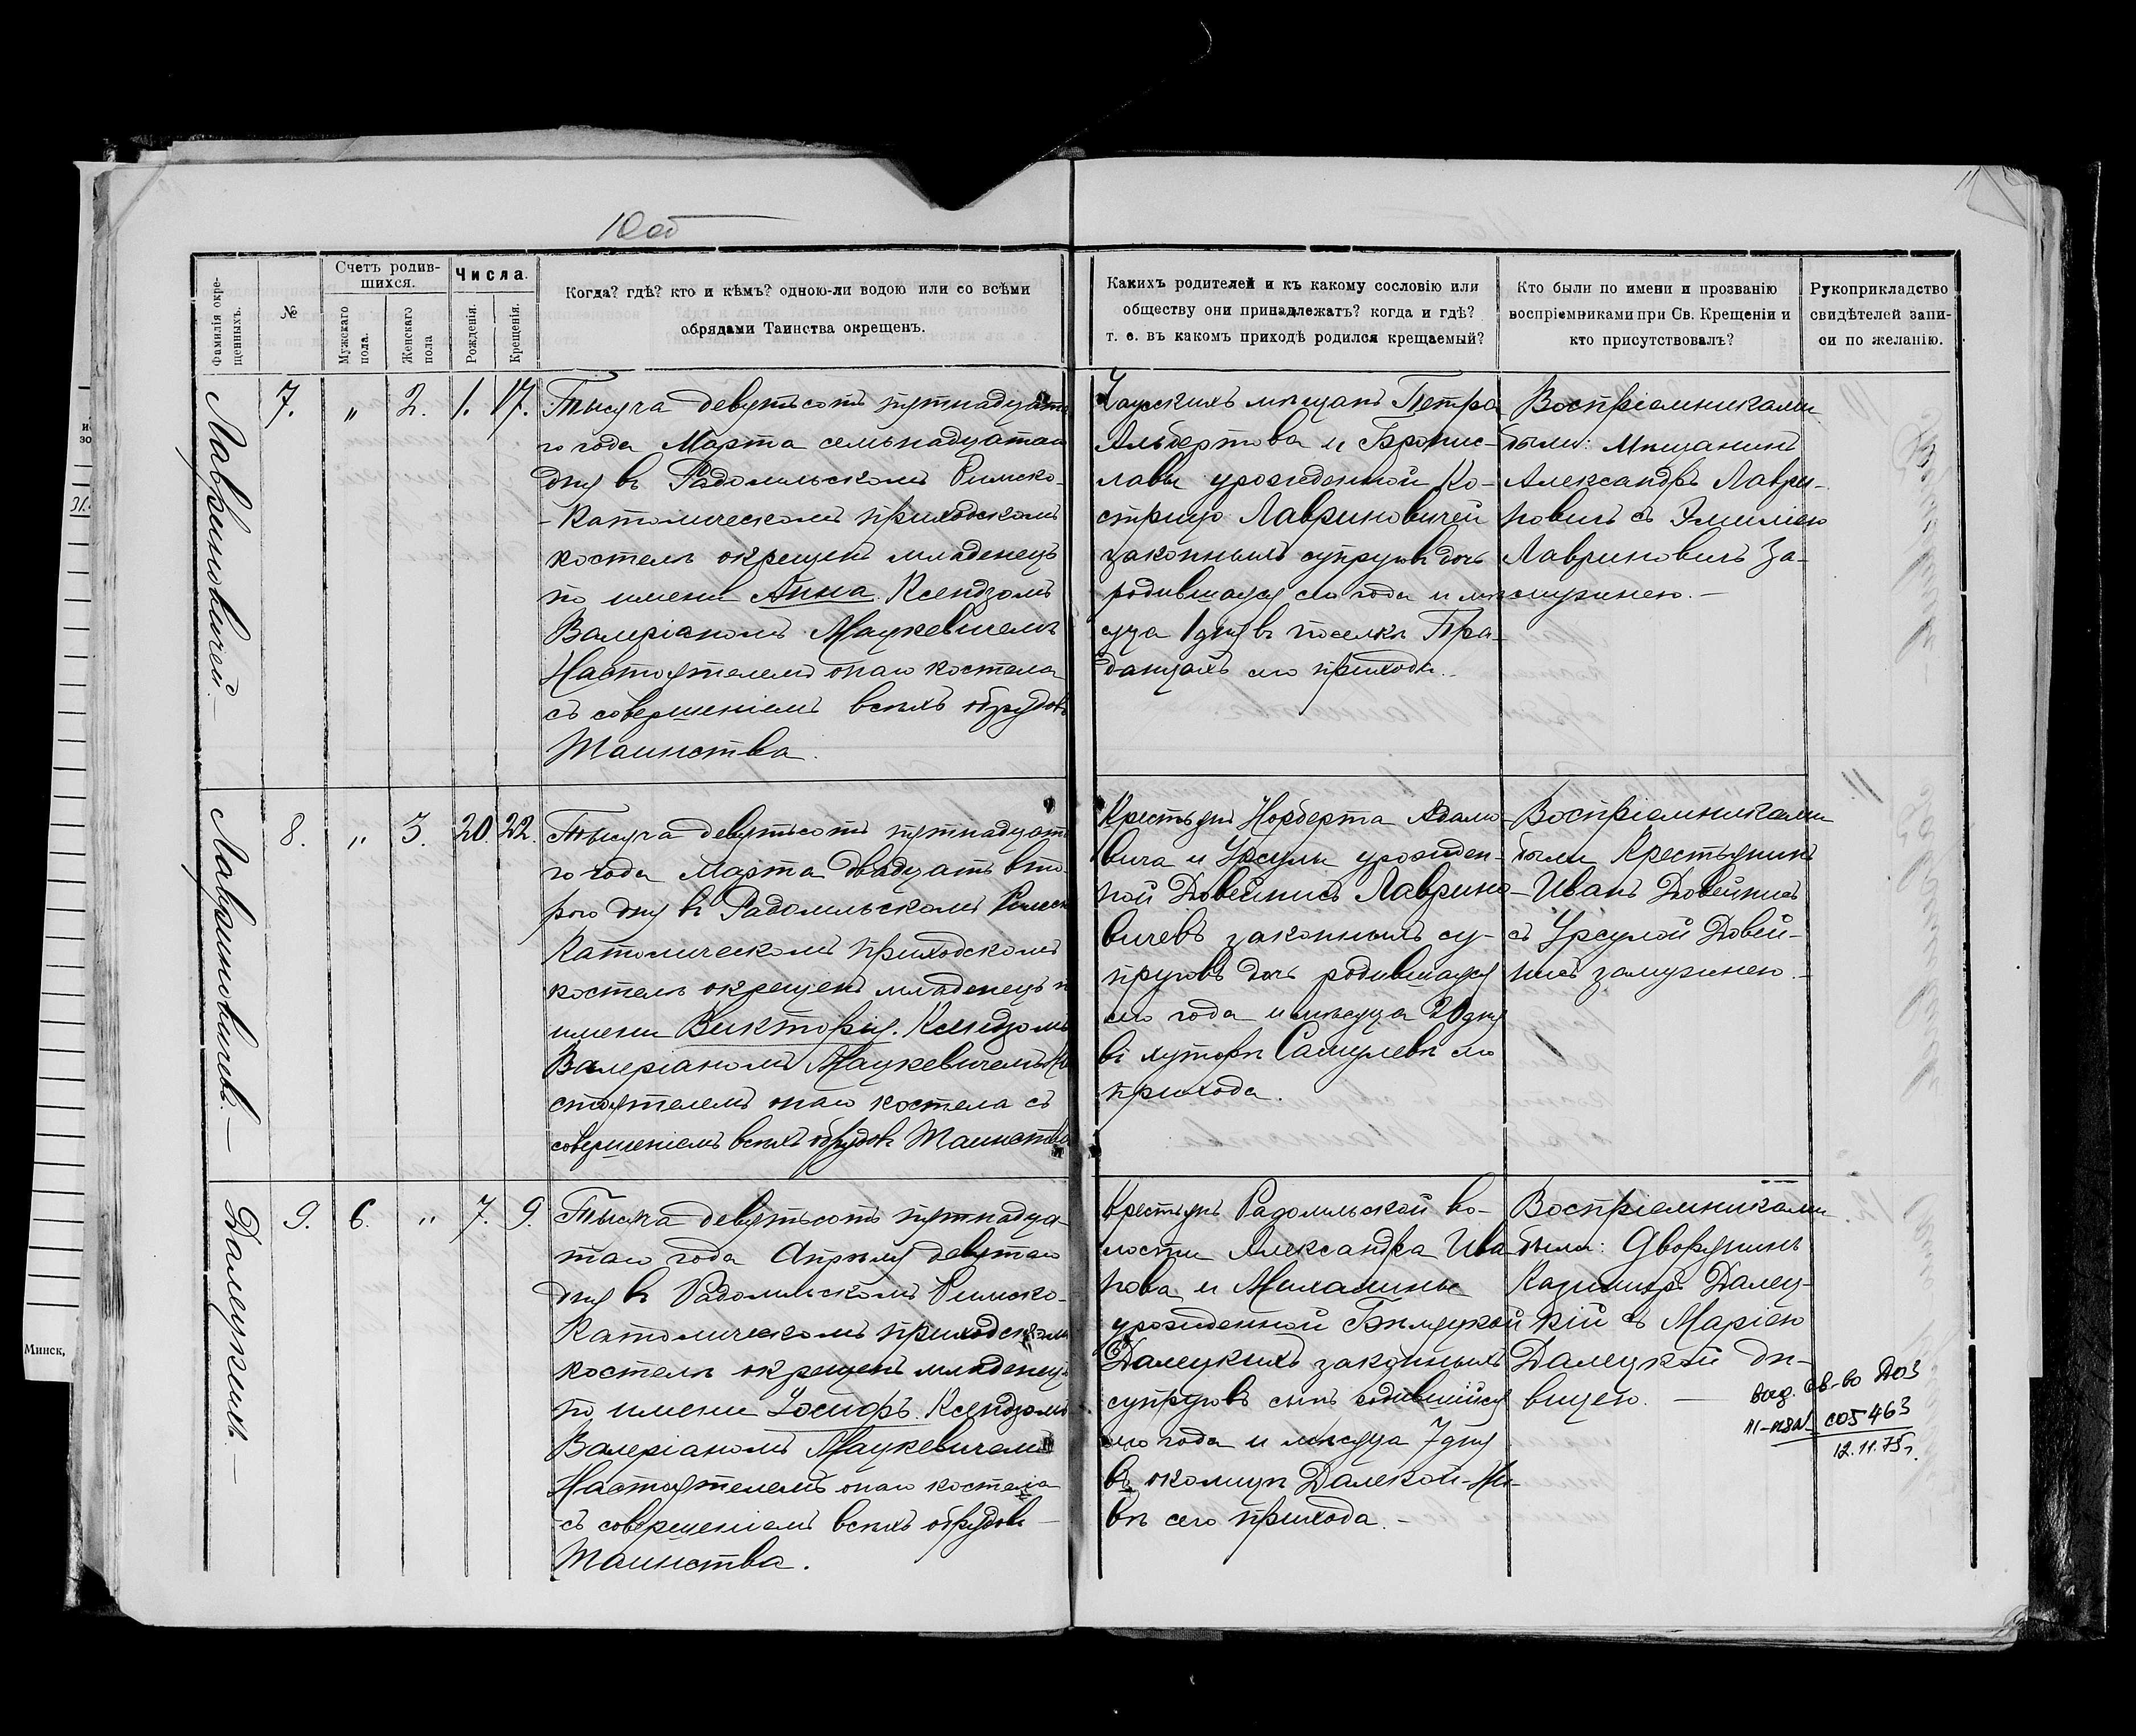 10об
11
Фамилія окре-
щенныхъ.
№
Счетъ родив-
шихся.
Мужскаго
пола.
Женскаго
пола
Числа.
Рожденія.
Крещенія.
Когда? гдѣ? кто и кѣмъ? одною-ли водою или со всѣми
обрядами Таинства окрещенъ.
Какихъ родителей и къ какому сословію или
обществу они принадлежатъ? когда и гдѣ?
т. е. въ какомъ приходѣ родился крещаемый?
Кто были по имени и прозванію
воспріемниками при Св. Крещеніи и
кто присутствовалъ?
Рукоприкладство
свидѣтелей запи-
си по желанію.
Лавриновичей.
7. „ 2. 1. 17.
Тысяча девятьсотъ пятнадцата
го года Марта семьнадцатаго
дня въ Радомльскомъ Римско-
-Католическомъ приходскомъ
костелѣ окрещенъ младенецъ
по имени Анна. Ксендзомъ
Валеріаномъ Мацкевичемъ
Настоятелемъ онаго костела
съ совершеніемъ всѣхъ обрядовъ
Таинства.
Чаусскихъ мѣщанъ Петра
Альбертова и Бронис-
лавы урожденной Ко-
Лавриновичей
законныхъ супруговъ дочь
родившаяся сего года и мѣ
сяца 1 дня въ поселкѣ Пра-
данцахъ сего прихода.
Воспріемниками
были: Мѣщанинъ
Александръ Лаври-
новичъ съ Эмиліею
Лавриновичъ за-
мужнею.
Лавриновичевъ.
8. „ 3. 20. 22.
Тысяча девятьсотъ пятнадцата
го года Марта двадцать вто-
рого дня въ Радомльскомъ Римско
Католическомъ приходскомъ
костелѣ окрещенъ младенецъ по
имени Викторія. Ксендзомъ
Валеріаномъ Мацкевичемъ На
стоятелемъ онаго костела съ
совершеніемъ всѣхъ обрядовъ Таинства
Крестьянъ Норберта Адамо-
вича и Урсулы урожден-
ной Довейнисъ Лаврино-
вичевъ законныхъ су-
пруговъ дочь родившаяся
сего года и мѣсяца 20 дня
въ хуторѣ Самулевѣ сего
прихода.
Воспріемниками
были Крестьянинъ
Иванъ Довейнисъ
съ Урсулой Довей-
нисъ замужнею.
Далецкихъ.
9. 6. „ 7. 9.
Тысяча девятьсотъ пятнадца-
таго года Апрѣля девятаго
дня въ Радомльскомъ Римско-
Католическомъ приходскомъ
костелѣ окрещенъ младенецъ
по имени Іосифъ. Ксендзомъ
Валеріаномъ Мацкевичемъ
Настоятелемъ онаго костела
съ совершеніемъ всѣхъ обрядовъ
Таинства.
Крестьянъ Радомльской во-
лости Александра Ива
нова и Михалины
урожденной
Далецкихъ законныхъ
супруговъ сынъ родившійся
сего года и мѣсяца 7 дня
въ околицѣ Далекой-Ни-
вѣ сего прихода.
Воспріемниками
были: Дворянинъ
Казимиръ Далец-
кій съ Маріею
Далецкой дѣ-
вицею.
выд. св-во
005463
12.11.75г.
Минск,